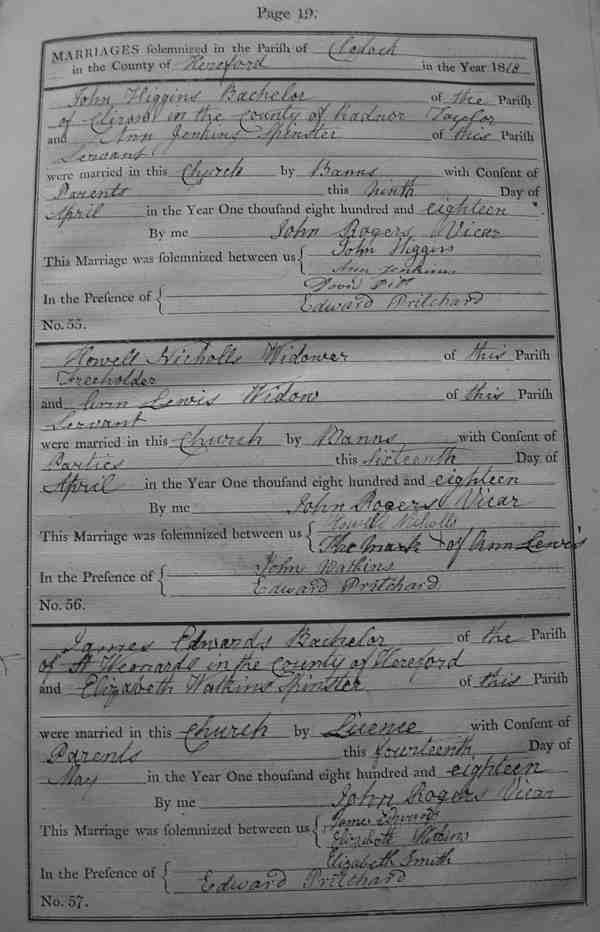 Page 19.
MARRIAGES solemnized in the Parish of Clodock
in the County of Hereford in the Year 1818
John Higgins Bachelor of the Parish
of Clirow in the County of Radnor Taylor
and Ann Jenkins Spinster of this Parish
Servant
were married in this Church by Banns with Consent of
Parents this Ninth Day of
April in the Year One thousand eight hundred and eighteen
By me John Rogers Vicar
This Marriage was solemnized between us { John Higgins
Ann Jenkins
In the Presence of { David Pitt
Edward Pritchard
No. 55.
Howell Nicholls Widower of this Parish
Freeholder
and Ann Lewis Widow of this Parish
Servant
were married in this Church by Banns with Consent of
Parties this Sixteenth Day of
April in the Year One thousand eight hundred and eighteen
By me John Rogers Vicar
This Marriage was solemnized between us { Howell Nicholls
The Mark + of Ann Lewis
In the Presence of { John Watkins
Edward Pritchard
No. 56.
James Edwards Bachelor of the Parish
of St Weonards in the County of Hereford
and Elizabeth Watkins Spinster of this Parish
were married in this Church by Licence with Consent of
Parents this fourteenth Day of
May in the Year One thousand eight hundred and eighteen
By me John Rogers Vicar
This Marriage was solemnized between us { James Edwards
Elizabeth Watkins
In the Presence of { Elizabeth Smith
Edward Pritchard
No. 57.